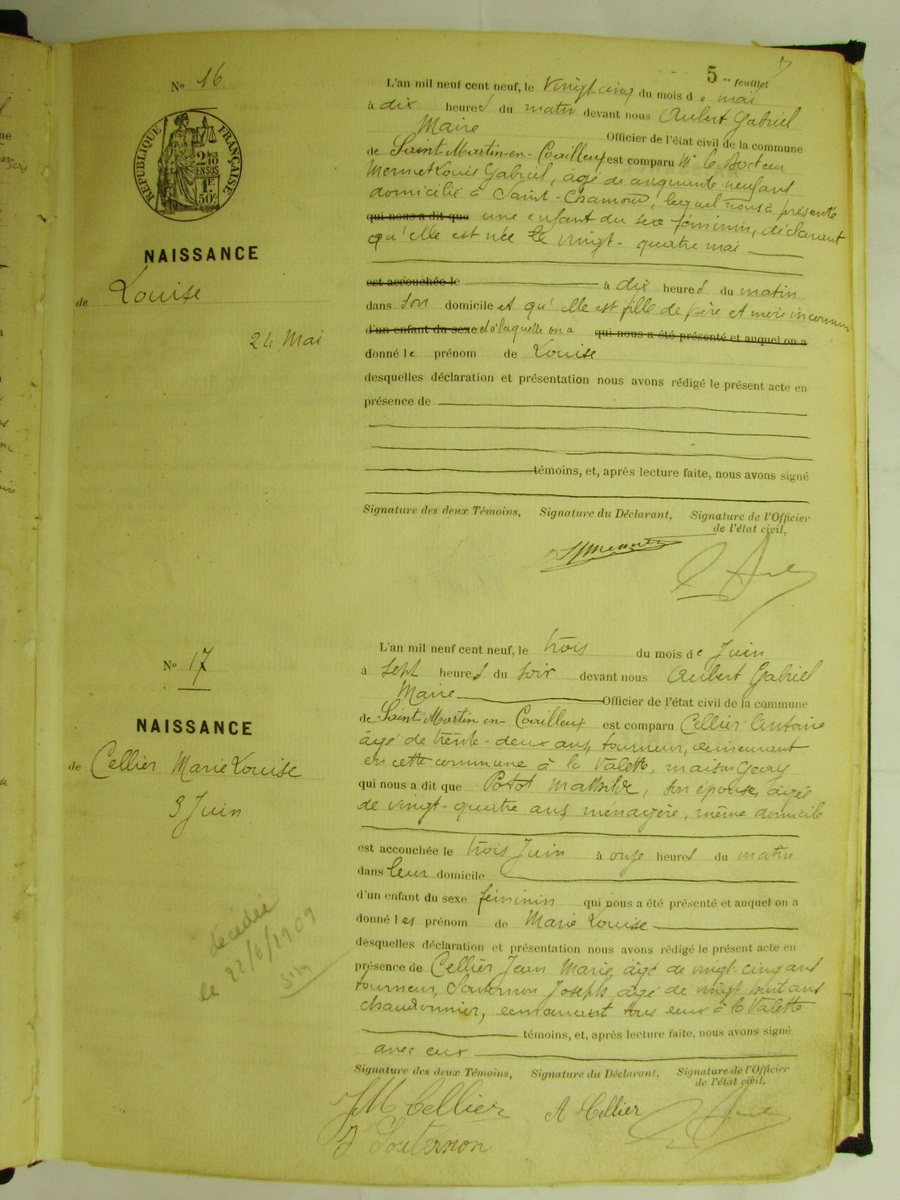 5 ᵐᵉ feuillet
Nº 16
RÉPUBLIQUE FRANÇAISE
2/10 EN SUS
1F 50c
NAISSANCE
de Louise
24 Mai
L'an mil neuf cent neuf, le vingt cinq du mois de mai
à dix heures du matin devant nous Aubert Gabriel
Maire Officier de l'état civil de la commune
de Saint-Martin-en-Coailleux est comparu Mr le Docteur
Mermet Louis Gabriel, âgé de cinquante neuf ans
domicilié à Saint-Chamond, lequel nous a présenté
qui nous a dit que une enfant du sexe féminin, déclarant
qu'elle est née le vingt-quatre mai
est accouchée le à dix heures du matin
dans son domicile et qu'elle est fille de père et mère inconnus
d'un enfant du sexe et à laquelle on a qui nous a été présenté et auquel on a
donné le prénom de Louise
desquelles déclaration et présentation nous avons rédigé le présent acte en
présence de
témoins, et, après lecture faite, nous avons signé
Signature des deux Témoins, Signature du Déclarant, Signature de l'Officier
de l'état civil,
Nº 17
NAISSANCE
de Cellier Marie Louise
3 Juin
décédée
le 22/6/1909
L'an mil neuf cent neuf, le trois du mois de Juin
à sept heures du soir devant nous Aubert Gabriel
Maire Officier de l'état civil de la commune
de Saint-Martin-en-Coailleux est comparu Cellier Antoine
âgé de trente-deux ans, tourneur, demeurant
en cette commune à la Valette, maison
qui nous a dit que Potot Mathilde, son épouse, âgée
de vingt-quatre ans ménagère, même domicile
est accouchée le trois Juin à onze heures du matin
dans leur domicile
d'un enfant du sexe féminin qui nous a été présenté et auquel on a
donné les prénom de Marie Louise
desquelles déclaration et présentation nous avons rédigé le présent acte en
présence de Cellier Jean Marie, âgé de vingt-cinq ans
tourneur, Souternon Joseph, âgé de vingt huit ans
chaudronnier, demeurant tous deux à la Valette
témoins, et, après lecture faite, nous avons signé
avec eux
Signature des deux Témoins, Signature du Déclarant, Signature de l'Officier
de l'état civil,
JM Cellier A Cellier
J Souternon